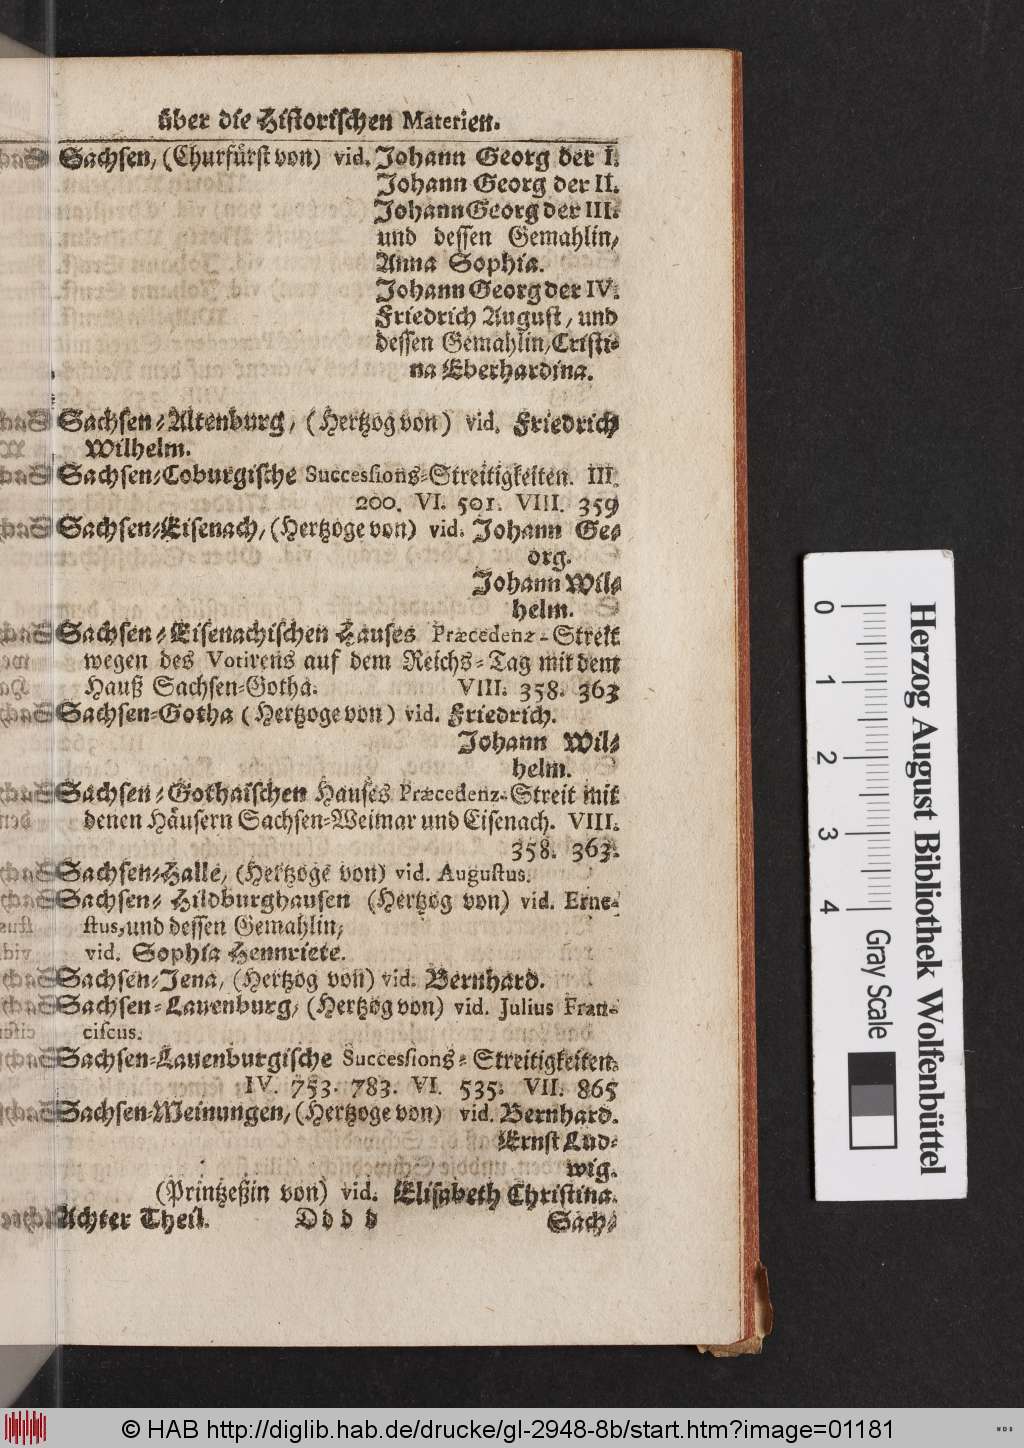 über die Historischen Materien.
Sachsen, (Churfürst von) vid. Johann Georg der I.
Johann Georg der II.
Johann Georg der III.
und dessen Gemahlin,
Anna Sophia.
Johann Georg der IV.
Friedrich August, und
dessen Gemahlin, Cristi-
na Eberhardina.
Sachsen-Altenburg, (Hertzog von) vid. Friedrich
Wilhelm.
Sachsen-Coburgische Successions-Streitigkeiten. III.
200. VI. 501. VIII. 359
Sachsen-Eisenach, (Hertzoge von) vid. Johann Ge-
org.
Johann Wil-
helm.
Sachsen-Eisenachischen Hauses Præcedenz-Streit
wegen des Votirens auf dem Reichs-Tag mit dem
Hauß Sachsen-Gotha. VIII. 358. 363
Sachsen-Gotha (Hertzoge von) vid. Friedrich.
Johann Wil-
helm.
Sachsen-Gothaischen Hauses Præcedenz-Streit mit
denen Häusern Sachsen-Weimar und Eisenach. VIII.
358. 363.
Sachsen-Halle, (Hertzoge von) vid. Augustus.
Sachsen-Hildburghausen (Hertzog von) vid. Erne-
stus, und dessen Gemahlin,
vid. Sophia Hennriete.
Sachsen-Jena, (Hertzog von) vid. Bernhard.
Sachsen-Lauenburg, (Hertzog von) vid. Julius Fran-
ciscus.
Sachsen-Lauenburgische Successions-Streitigkeiten.
IV. 753. 783. VI. 535. VII. 865
Sachsen-Meinungen, (Hertzoge von) vid. Bernhard.
Ernst Lud-
wig.
(Printzeßin von) vid. Elisabeth Christina.
Achter Theil. Dddd Sach-
Herzog August Bibliothek Wolfenbüttel
0 1 2 3 4 Gray Scale
© HAB http://diglib.hab.de/drucke/gl-2948-8b/start.htm?image=01181